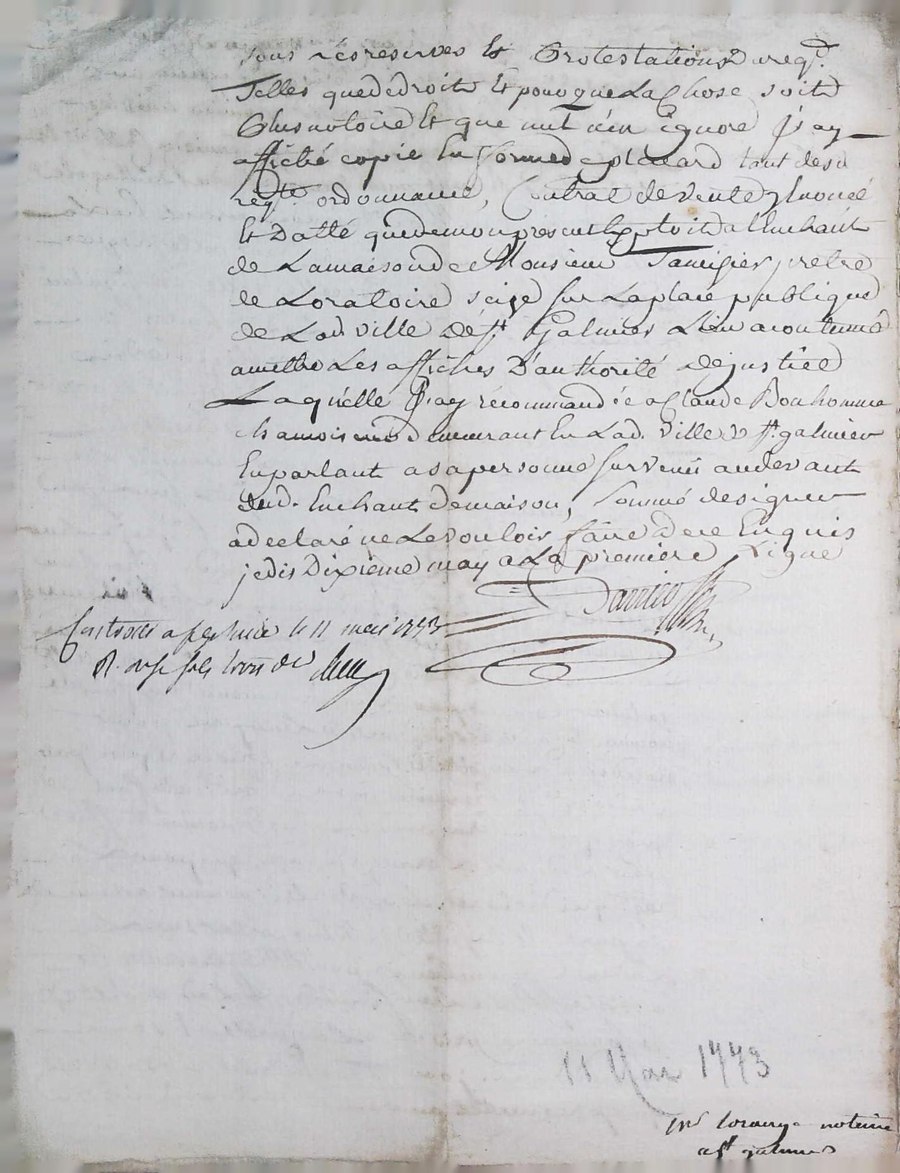 sous les reserves et Protestations du reqt.
Telles que de droit et pour que La Chose soit
Plus notoire et que nul n'en Ignore J'ay
affiché copie En forme de placard tant desd
reqte ordonnance, Contrat de vente Enoncé
Et Datté que de mon present Exploit a l'Enchant
de La maison de Monsieur Tamisier pretre
de Loratoire scize sur La place publique
de Lad ville de st Galmier Lieu acoutumé
a mettre Les affiches D'authorité de justice
Laquelle J'ay récommandée a Claude Bonhomme
chamois demeurant En Lad. ville de st. galmier
En parlant a sa personne survenu au devant
dud. Enchant de maison, sommé de signer
a declaré ne Le vouloir faire de ce Enquis
jedis Dixieme may a La premiere Ligne
Controllé a st galmier le 11 mai 1773
R.
11 Mai 1773
notaire
a st galmier